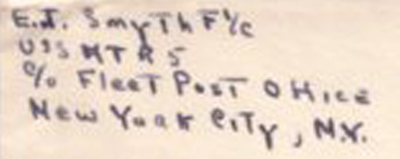 E.J. Smyth F1/c
USS MTR 5
c/o Fleet Post Office
New York City, N.Y.